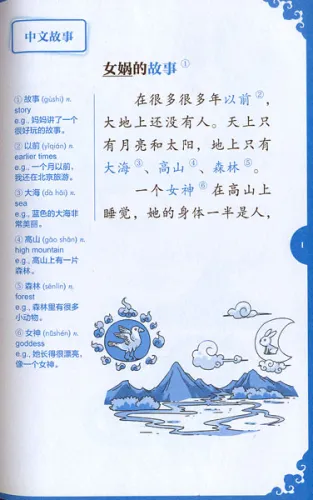 中文故事
女娲的故事①
在很多很多年以前②，
大地上还没有人。天上只
有月亮和太阳，地上只有
大海③、高山④、森林⑤。
一个女神⑥在高山上
睡觉，她的身体一半是人，
① 故事 (gùshi) n.
story
e.g., 妈妈讲了一个
很好玩的故事。
② 以前 (yǐqián) n.
earlier times
e.g., 一个月以前，
我还在北京旅游。
③ 大海 (dà hǎi) n.
sea
e.g., 蓝色的大海非
常美丽。
④ 高山 (gāo shān) n.
high mountain
e.g., 高山上有一片
森林。
⑤ 森林 (sēnlín) n.
forest
e.g., 森林里有很多
小动物。
⑥ 女神 (nǚshén) n.
goddess
e.g., 她长得很漂亮，
像一个女神。
1